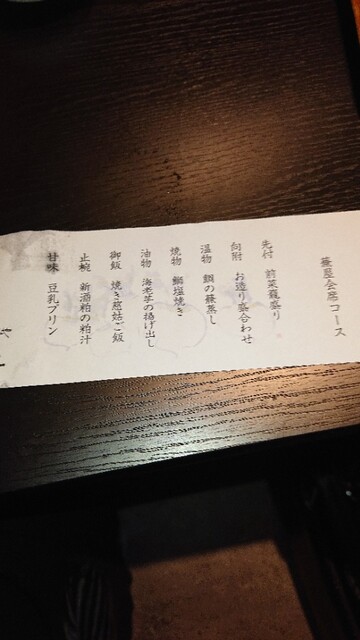 籠屋会席コース
先付 前菜籠盛り
向附 お造り盛合わせ
温物 鯛の蕪蒸し
焼物 鰤塩焼き
油物 海老芋の揚げ出し
御飯 焼き慈姑ご飯
止椀 新酒粕の粕汁
甘味 豆乳プリン